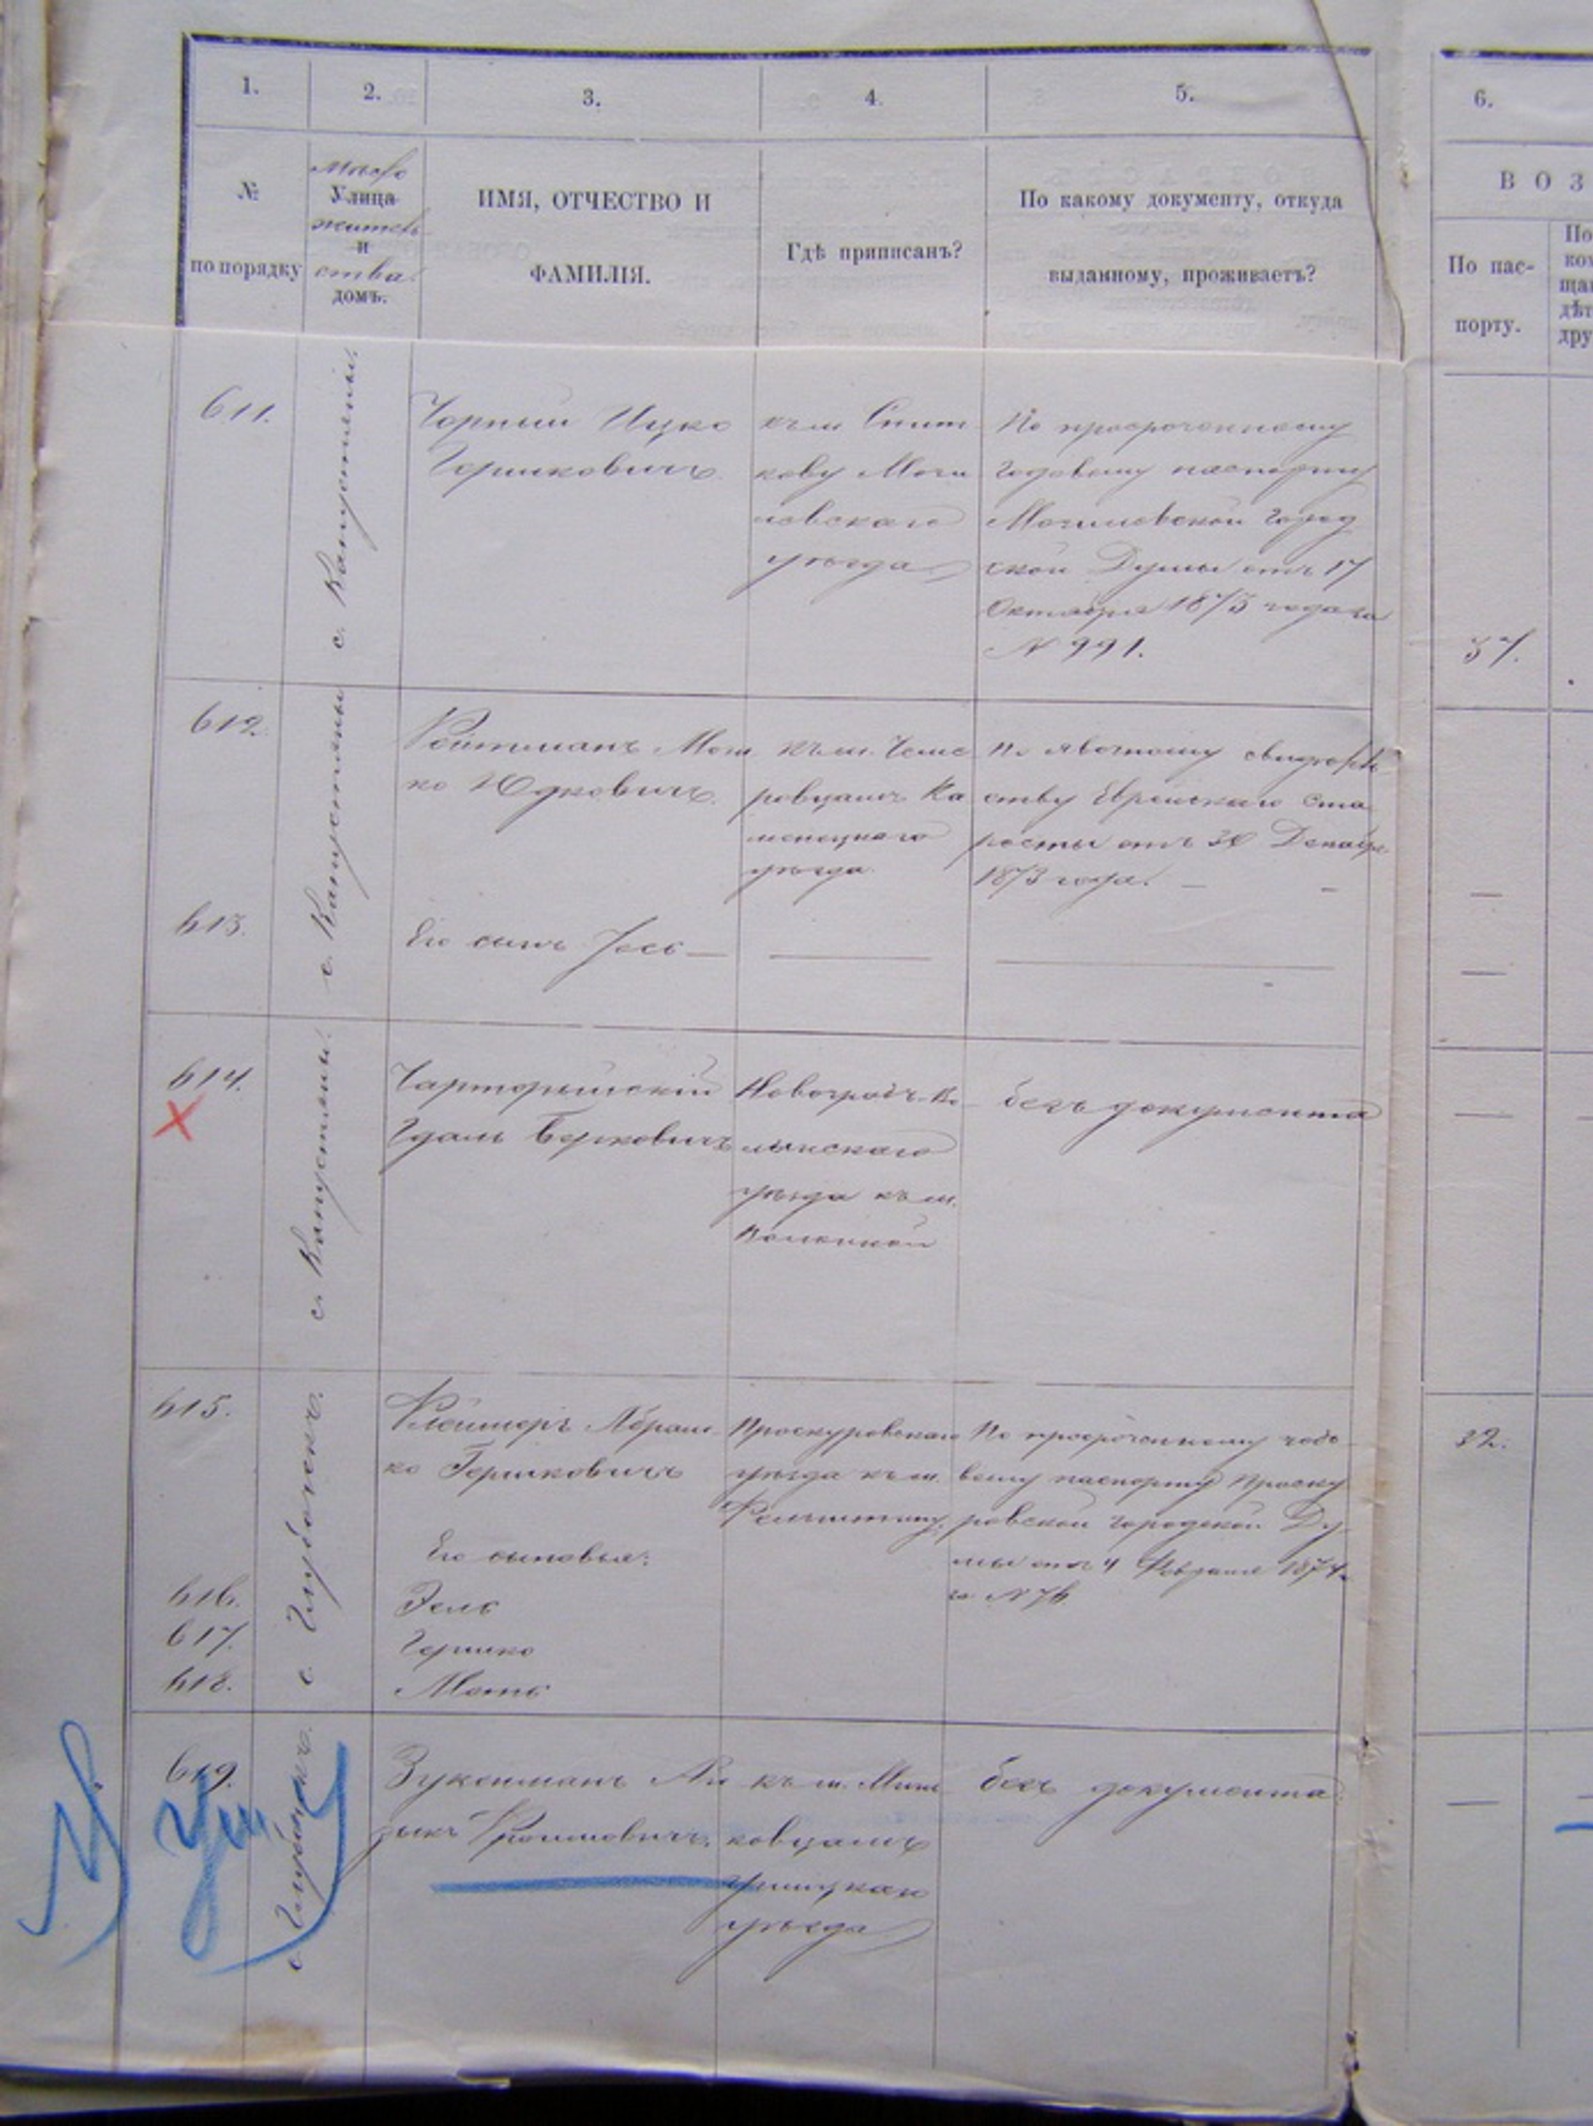 1.
2.
3.
4.
5.
6.
№
по порядку
Мѣсто
Улица
житель
и
ства.
домъ.
ИМЯ, ОТЧЕСТВО И
ФАМИЛІЯ.
Гдѣ приписанъ?
По какому документу, откуда
выданному, проживаетъ?
ВОЗ
По пас-
порту.
По
ко
ща
дѣт
дру
611.
с. Капустяны.
Чорный Ицко
Гершковичъ
къ м. Снит
кову Моги
левскаго
уѣзда
По просроченному
годовому паспорту
Могилевской Город
ской Думы отъ 17
Октября 1873 года за
N 991.
37.
612.
с. Капустяны
Ройтманъ Мош
ко Юдковичъ.
къ м. Чеме
ровцамъ Ка
менецкаго
уѣзда
По явочному свидѣтель
ству Еврейскаго Ста
росты отъ 30 Декабр.
1873 года.
613.
Его сынъ Іось
614.
с. Капустяны.
Чарторыйскій
Гдаль Берковичъ
Новоградъ-Во
лынскаго
уѣзда къ м.
безъ документа
615.
с. Глубочекъ.
Флейшеръ Абрам
ко Гершковичъ
Проскуровскаго
уѣзда къ м.
Фельштину.
По просроченному годо
вому паспорту Проску
ровской городской Ду
мы отъ 4 Февраля 1874
за N 76.
32.
Его сыновья:
616.
617.
Гершко
618.
619.
с. Глубочекъ.
Зукенманъ Ай
зикъ Фроимовичъ.
къ м. Минь
ковцамъ
Ушицкаго
уѣзда
безъ документа.